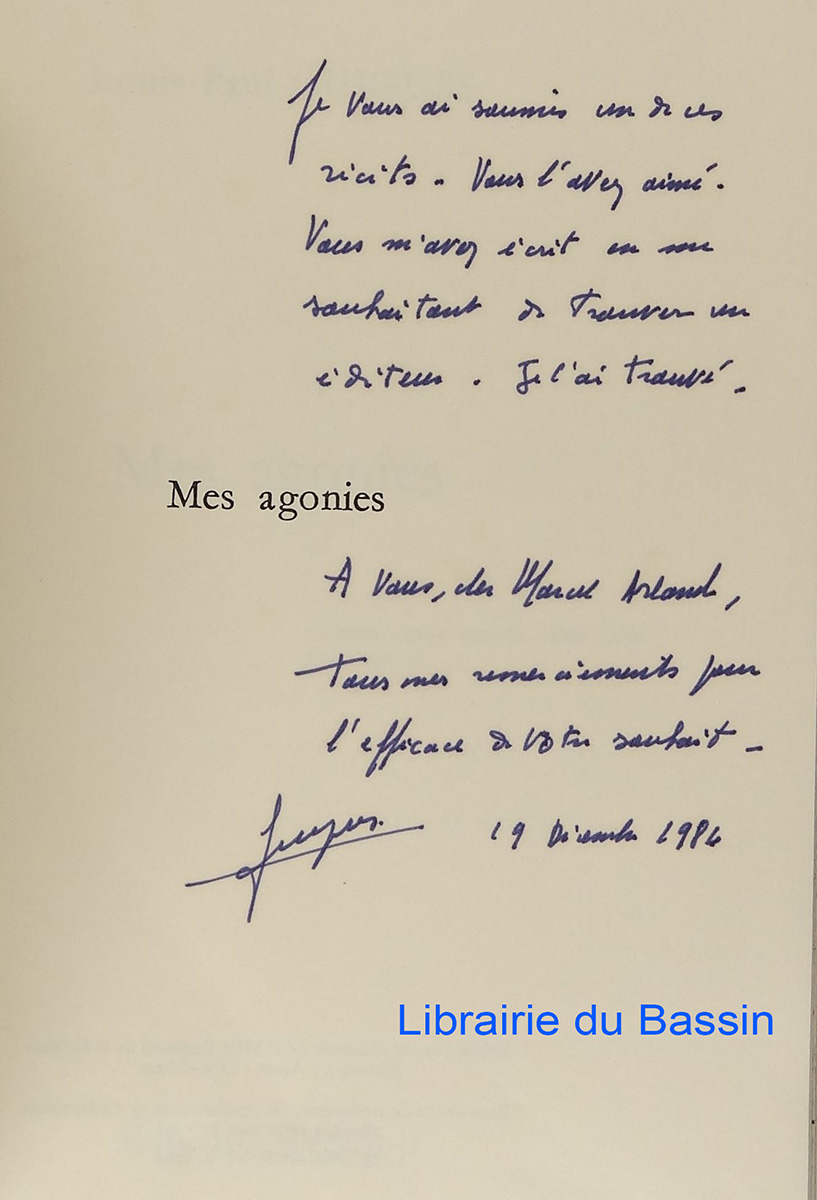 Je vous ai soumis un de ces
récits. Vous l'avez aimé.
Vous m'avez écrit en me
souhaitant de trouver un
éditeur. Je l'ai trouvé.
Mes agonies
A vous, cher Marcel Arland,
tous mes remerciements pour
l'efficace de votre souhait.
19 Décembre 1984
Librairie du Bassin